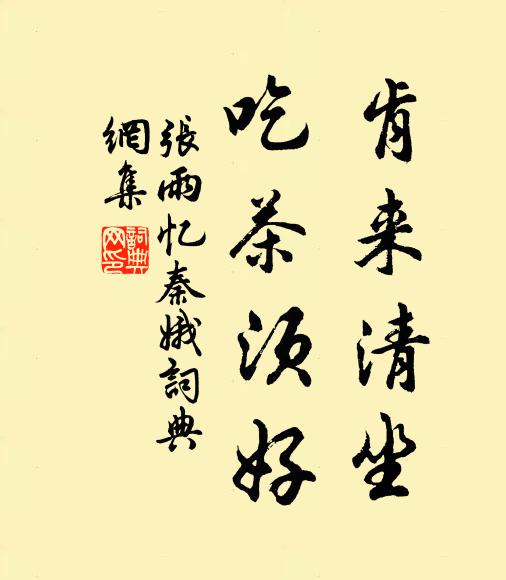 肯来清坐
吃茶须好
張雨忆秦娥詞典
網集
詞典网印